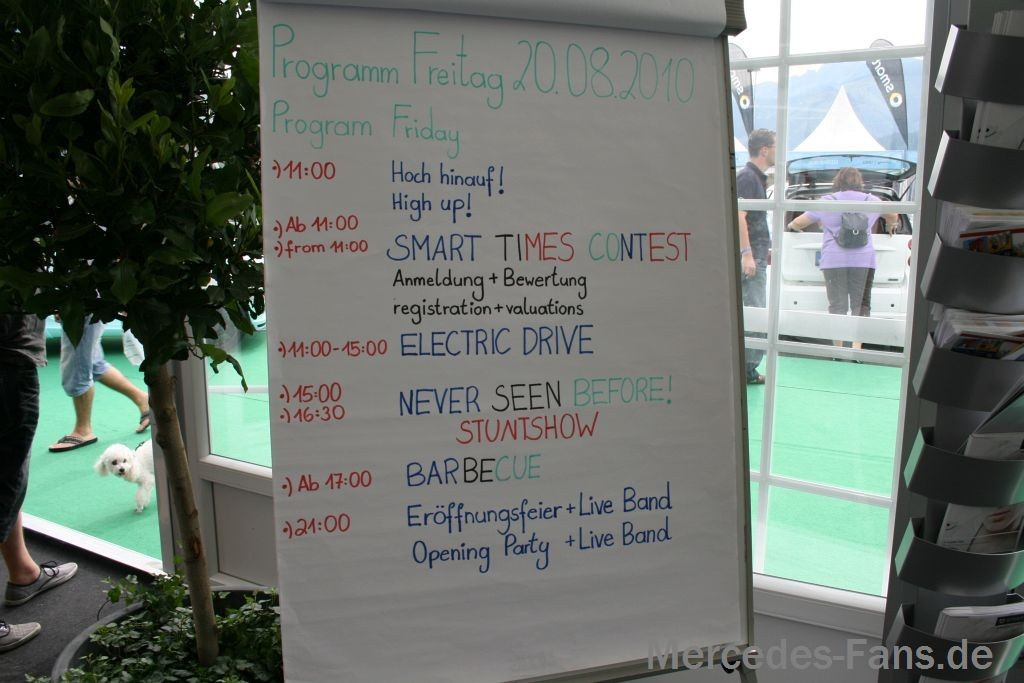 Programm Freitag 20.08.2010
Program Friday
•) 11:00 Hoch hinauf!
High up!
•) Ab 11:00
•) from 11:00 SMART TIMES CONTEST
Anmeldung + Bewertung
registration + valuations
•) 11:00-15:00 ELECTRIC DRIVE
•) 15:00
•) 16:30 NEVER SEEN BEFORE!
STUNTSHOW
•) Ab 17:00 BARBECUE
•) 21:00 Eröffnungsfeier + Live Band
Opening Party + Live Band
smart
Mercedes-Fans.de